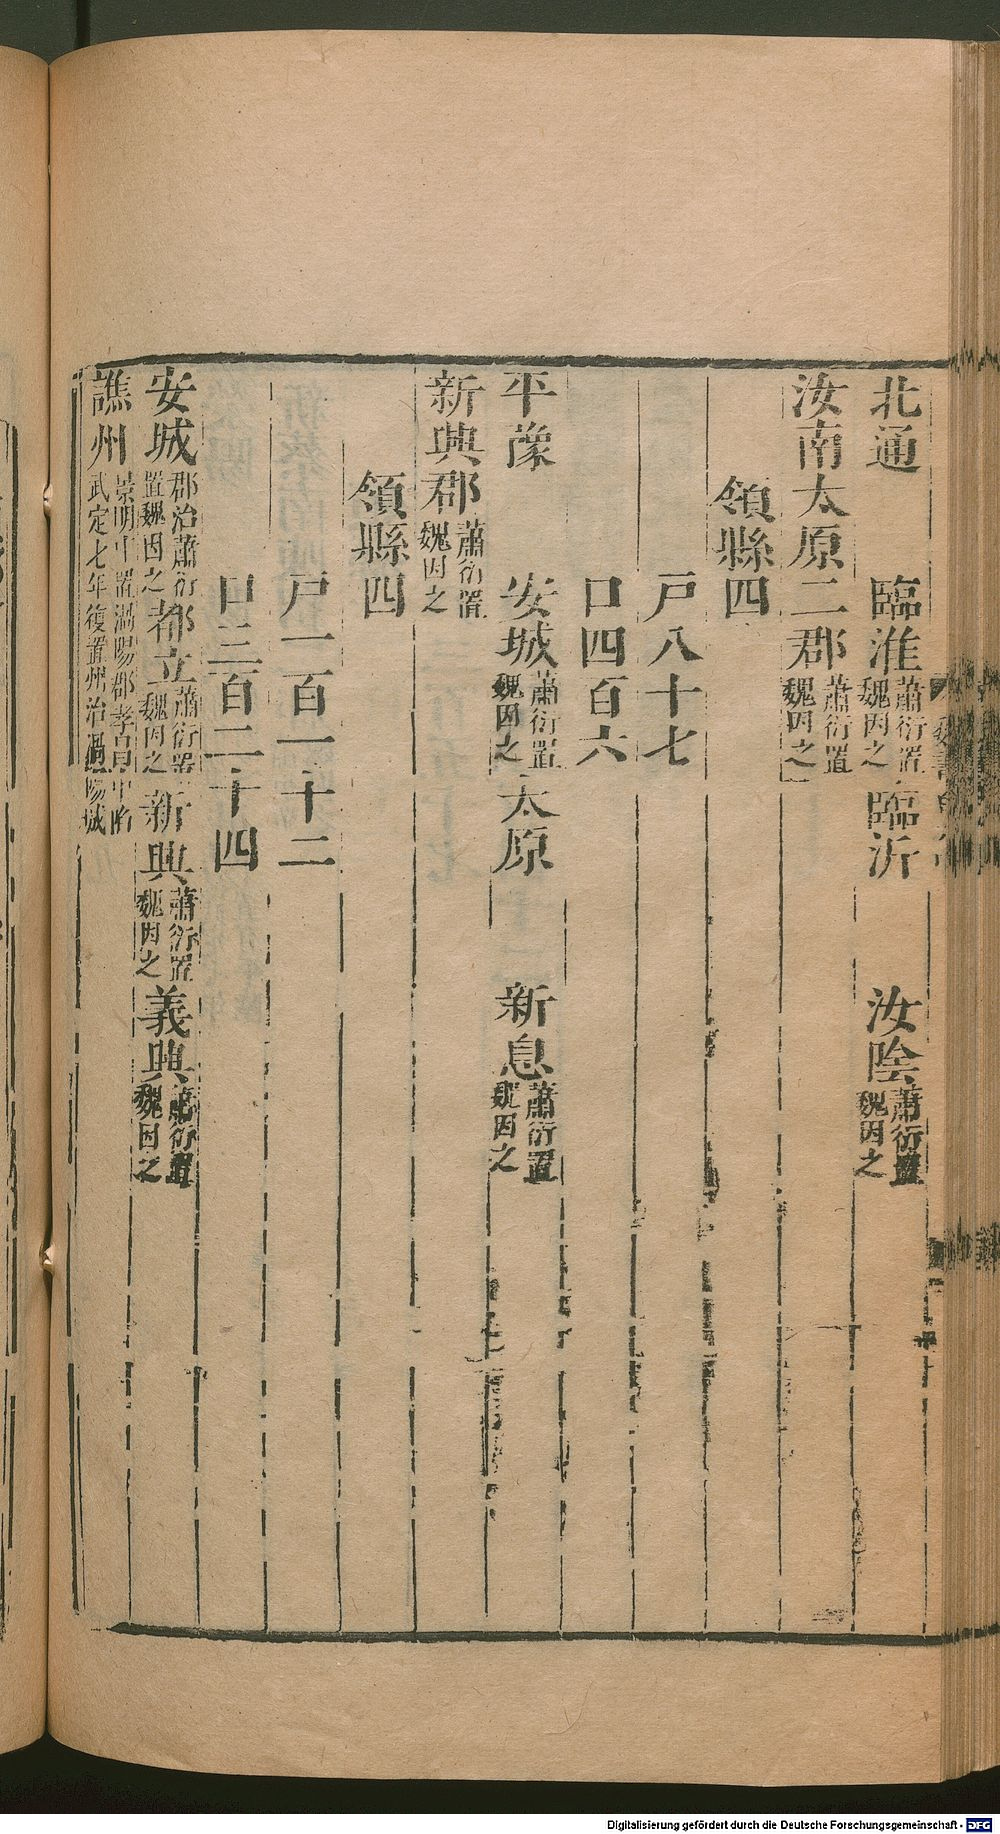 北通　臨淮蕭衍置魏因之　臨沂　汝陰蕭衍置魏因之
汝南太原二郡蕭衍置魏因之
領縣四
戶八十七
口四百六
平豫　安城蕭衍置魏因之　太原　新息蕭衍置魏因之
新興郡蕭衍置魏因之
領縣四
戶一百一十二
口三百二十四
安城郡治蕭衍置魏因之　都立蕭衍置魏因之　新興蕭衍置魏因之　義興蕭衍置魏因之
譙州景明中置渦陽郡孝昌中陷武定七年復置州治渦陽城
Digitalisierung gefördert durch die Deutsche Forschungsgemeinschaft - DFG